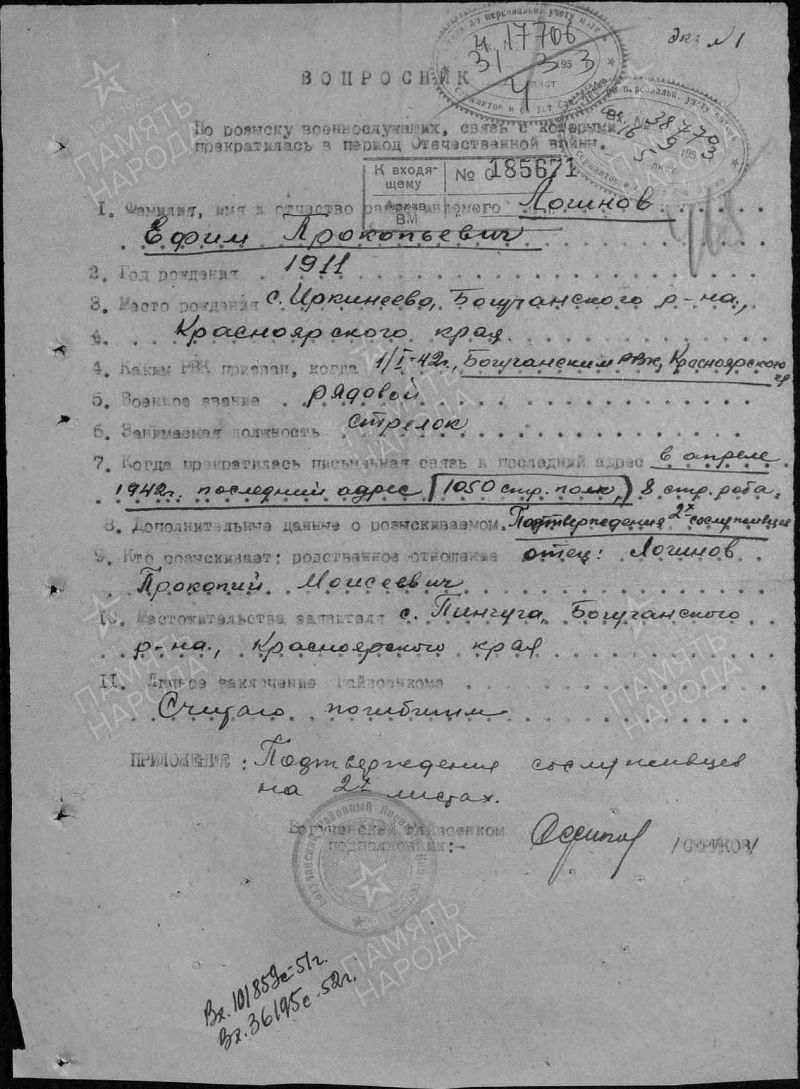 экз №1
Ч. 17706
31 3 1953
4 лист
ВОПРОСНИК
По розыску военнослужащих, связь с которыми
прекратилась в период Отечественной войны.
вх. № 38770
195
К входя-
щему № 0185671
Архива
ВМ
1. Фамилия, имя и отчество разыскиваемого Логинов
Ефим Прокопьевич
2. Год рождения 1911
3. Место рождения с. Иркинеево, Богучанского р-на,
4. Красноярского края
4. Каким РВК призван, когда 1/I-42г., Богучанским РВК, Красноярского кр
5. Военное звание рядовой
6. Занимаемая должность стрелок
7. Когда прекратилась письменная связь и последний адрес в апреле
1942г. последний адрес 1050 стр. полк, 8 стр. рота.
8. Дополнительные данные о розыскиваемом. Подтверждения 2х сослуживцев
9. Кто розыскивает: родственное отношение отец: Логинов
Прокопий Моисеевич
10. Местожительства заявителя с. Пинчуга, Богучанского
р-на, Красноярского края
11. Личное заключение Райвоенкома
Считаю погибшим
ПРИЛОЖЕНИЕ: Подтверждения сослуживцев
на 2х листах.
Богучанский Райвоенком
подполковник:- /СЕРИКОВ/
Вх. 101859с-51г.
Вх. 36195с-52г.
ПАМЯТЬ
НАРОДА